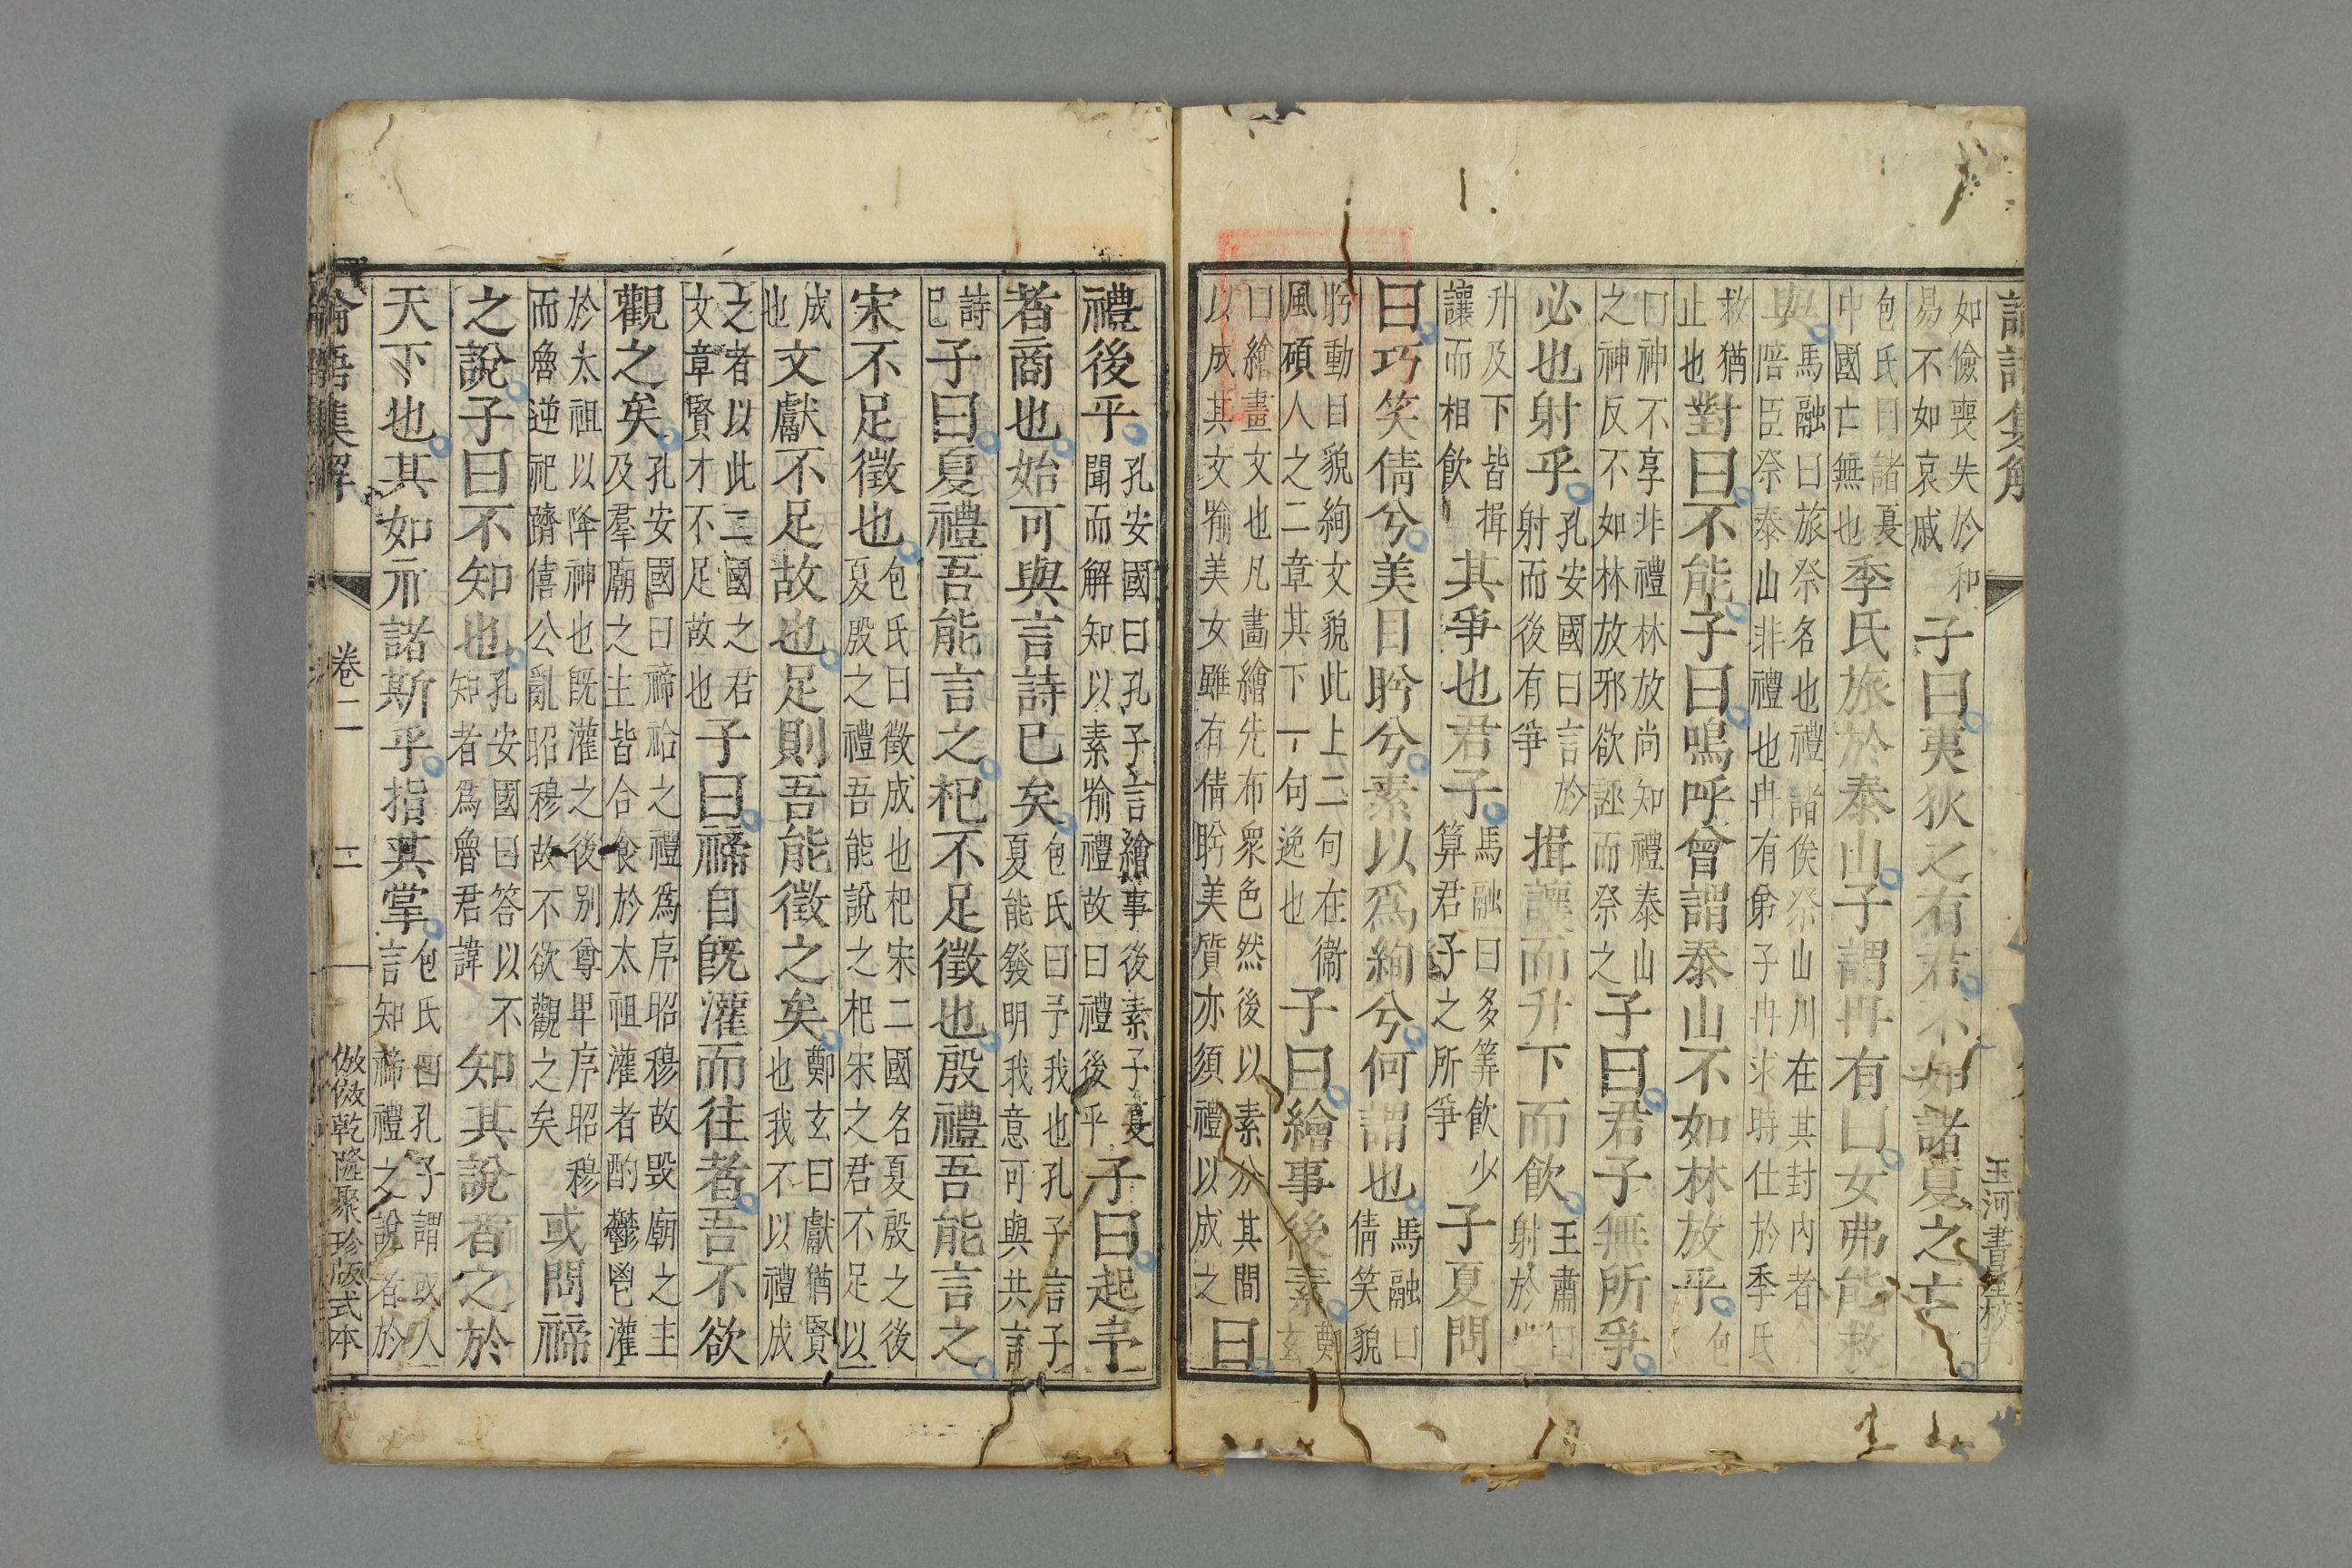 論語集解
玉河書屋校
如儉喪失於和易不如哀戚子曰夷狄之有君不如諸夏之亡
包氏曰諸夏中國亡無也季氏旅於泰山子謂冉有曰女弗能救
與馬融曰旅祭名也禮諸侯祭山川在其封內者陪臣祭泰山非禮也冉有弟子冉求時仕於季氏
救猶止也對曰不能子曰嗚呼曾謂泰山不如林放乎包
曰神不享非禮林放尚知禮泰山之神反不如林放邪欲誣而祭之子曰君子無所爭
必也射乎孔安國曰言於射而後有爭揖讓而升下而飲王肅曰射於堂
升及下皆揖讓而相飲其爭也君子馬融曰多筭飲少算君子之所爭子夏問
曰巧笑倩兮美目盻兮素以爲絢兮何謂也馬融曰倩笑貌
盻動目貌絢文貌此上二句在衞風碩人之二章其下一句逸也子曰繪事後素鄭玄
曰繪畫文也凡畫繪先布衆色然後以素分其間以成其文喻美女雖有倩盻美質亦須禮以成之曰
禮後乎孔安國曰孔子言繪事後素子夏聞而解知以素喻禮故曰禮後乎子曰起予
者商也始可與言詩已矣包氏曰予我也孔子言子夏能發明我意可與共言
詩已子曰夏禮吾能言之杞不足徵也殷禮吾能言之
宋不足徵也包氏曰徵成也杞宋二國名夏殷之後夏殷之禮吾能說之杞宋之君不足以
成也文獻不足故也足則吾能徵之矣鄭玄曰獻猶賢也我不以禮成
之者以此二國之君文章賢才不足故也子曰禘自既灌而往者吾不欲
觀之矣孔安國曰禘祫之禮爲序昭穆故毀廟之主及羣廟之主皆合食於太祖灌者酌鬱鬯灌
於太祖以降神也既灌之後別尊卑序昭穆而魯逆祀躋僖公亂昭穆故不欲觀之矣或問禘
之說子曰不知也孔安國曰答以不知者爲魯君諱知其說者之於
天下也其如示諸斯乎指其掌包氏曰孔子謂或人言知禘禮之說者於
論語集解
卷二
二
倣倣乾隆聚珍版式本